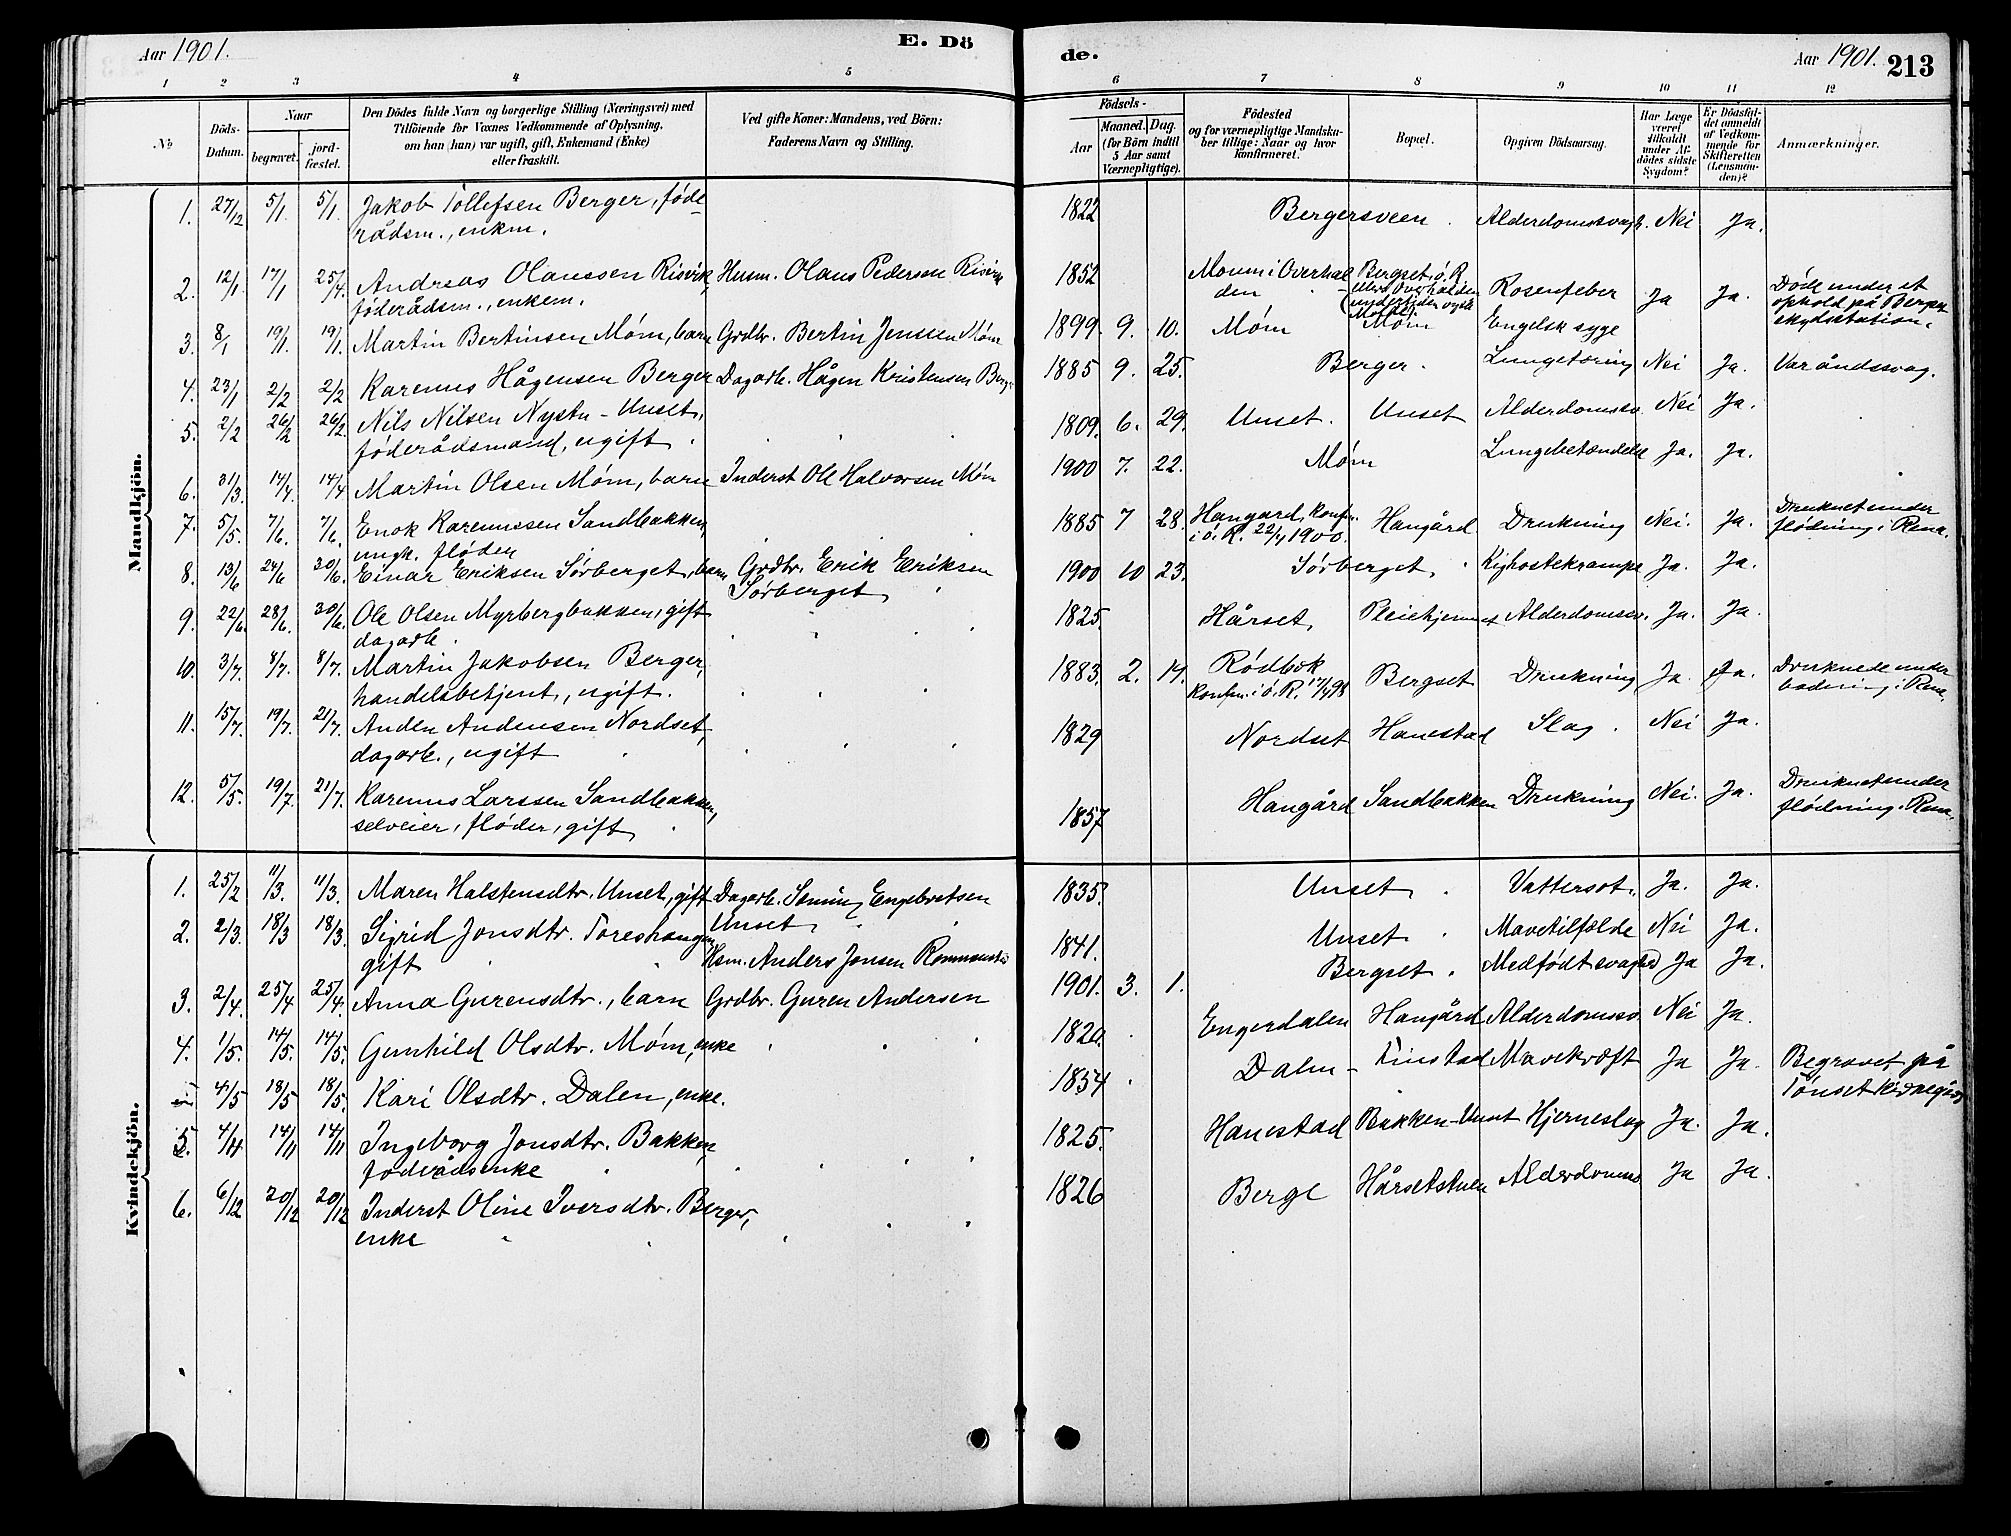 Aar 1901.
E. Dö
de.
Aar 1901. 213
1 2 3 4 5 6 7 8 9 10 11 12
No
Döds-
Datum.
Naar
begravet.
jord-
fæstet.
Den Dödes fulde Navn og borgerlige Stilling (Næringsvei) med
Tilföiende for Voxnes Vedkommende af Oplysning,
om han (hun) var ugift, gift, Enkemand (Enke)
eller fraskilt.
Ved gifte Koner: Mandens, ved Börn:
Faderens Navn og Stilling.
Födsels-
Aar
Maaned. Dag.
(for Börn indtil
5 Aar samt
Værnepligtige).
Födested
og for værnepligtige Mandska-
ber tillige: Naar og hvor
konfirmeret.
Bopæl.
Opgiven Dödsaarsag.
Har Læge
været
tilkaldt
under Af-
dödes sidste
Sygdom?
Er Dödsfal-
det anmeldt
af Vedkom-
mende for
Skifteretten
(Lensman-
den)?
Anmærkninger.
Mandkjön.
1. 27/12 5/1. 5/1. Jakob Tollefsen Berger, føde-
rådsm., enkm.
1822 Bergersveen. Alderdomssvagh. Nei Ja.
2. 12/1 17/1 25/4. Andreas Olaussen Risvik, Husm. Olaus Pedersen Risvik
føderådsm., enkem.
1852 Moum i Overhal-
den
Bergset, ö. R.
ellers Overhalden
Rosenfeber Ja Ja. Døde under et
ophold på Berger
skydsstation.
3. 8/1 19/1. 19/1. Martin Bertinsen Møm, barn Grdbr. Bertin Jenssen Møm
1899. 9. 10. Møm Møm Engelsk syge
4. 23/1 2/2 2/2 Karenus Hågensen Berger Dagarb. Hågen Kristensen Berger
1885 9. 25. Berger. Lungetæring Nei Ja. Var åndssvag.
5. 2/2 26/2 26/2. Nils Nilsen Nystu-Unset,
føderådsmand, ugift
1809. 6. 29. Unset. Unset Alderdomssv. Nei Ja.
6. 31/3. 14/4. 14/4 Martin Olsen Møm, barn Inderst Ole Halvorsen Møm
1900 7. 22. Møm Lungebetændelse Ja. Ja.
7. 5/5. 7/6. 7/6. Enok Karenussen Sandbakken,
ungk. fløder
1885 7 28. Hangård, konfr.
i ö. R. 22/7 1900.
Hangård Drukning Nei. Ja. Druknet under
flødning i Rena.
8. 13/6 24/6 30/6. Einar Eriksen Sørberget, barn Grdbr. Erik Eriksen
Sørberget
1900 10 23. Sørberget. Kighostekrampe Ja. Ja.
9. 22/6. 28/6. 30/6. Ole Olsen Myrbergbakken, gift
dagarb.
1825. Hårset, Pleiehjemmet Alderdomssv. Ja. Ja.
10. 3/7. 8/7. 8/7. Martin Jakobsen Berger,
handelsbetjent, ugift.
1883. 2. 14. Rødbæk
Konfm. i ö. R. 17/7 98
Bergset Drukning Ja. Ja. Druknede under
badning i Rena.
11. 15/7. 19/7. 21/7. Anden Andensen Nordset,
dagarb., ugift
1829 Nordset Hanestad Slag. Nei Ja.
12. 5/5. 19/7. 21/7. Karenus Larssen Sandbakken,
selveier, fløder, gift
1857 Hangård Sandbakken Drukning Nei. Ja. Druknet under
flødning i Rena.
Kvindekjön.
1. 25/2 11/3. 11/3. Maren Halstensdtr. Unset, gift Dagarb. Søming Engebretsen
Unset
1835. Unset Vattersot. Ja. Ja.
2. 2/3. 18/3 18/3. Sigrid Jonsdtr. Toreshaugen
gift Hsm. Anders Jonsen
1841. Unset. Mavetilfælde Nei Ja.
3. 2/4. 25/4 25/4. Anna Gurensdtr., barn Grdbr. Guren Andersen
1901. 3. 1. Bergset. Medfødt svaghed Ja Ja.
4. 1/5. 14/5. 14/5. Gunhild Olsdtr. Møm, enke
1820. Engerdalen Hangård Alderdomssv. Nei Ja.
4/5 18/5 18/5. Kari Olsdtr. Dalen, enke.
1834 Dalm- Finstad Mavekræft Ja Ja. Begravet på
Tønset kirkegård
5. 4/11 14/11 14/11 Ingeborg Jonsdtr. Bakken,
føderådsenke
1825. Hanestad Bakken-Unset Hjerneslag Ja. Ja.
6. 6/12 20/12 20/12 Inderst Oline Iversdtr. Berger,
enke
1826 Berge Hårsetstuen Alderdomss Ja Ja.